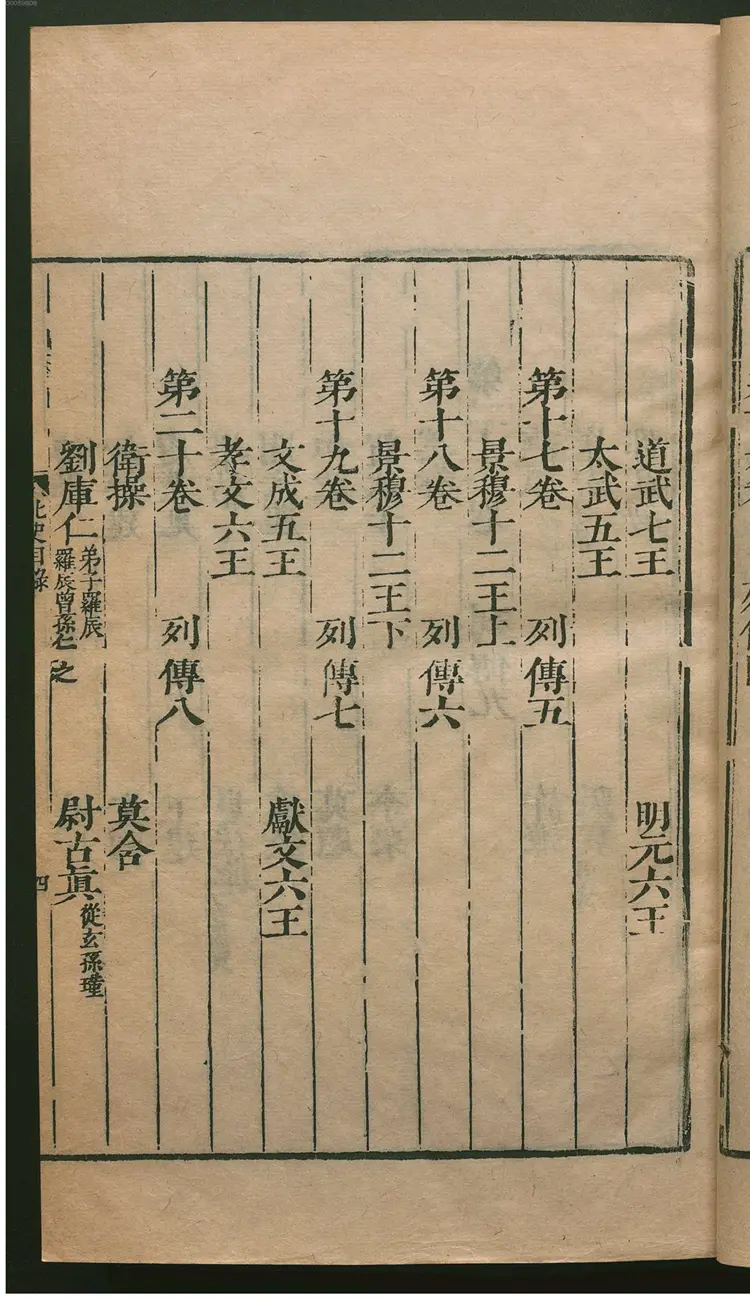 道武七王 明元六王
太武五王
第十七卷 列傳五
景穆十二王上
第十八卷 列傳六
景穆十二王下
第十九卷 列傳七
文成五王 獻文六王
孝文六王
第二十卷 列傳八
衛操 莫含
劉庫仁 弟子羅辰 羅辰曾孫仁之 尉古眞 從玄孫瑾
北史目錄 四
00059809